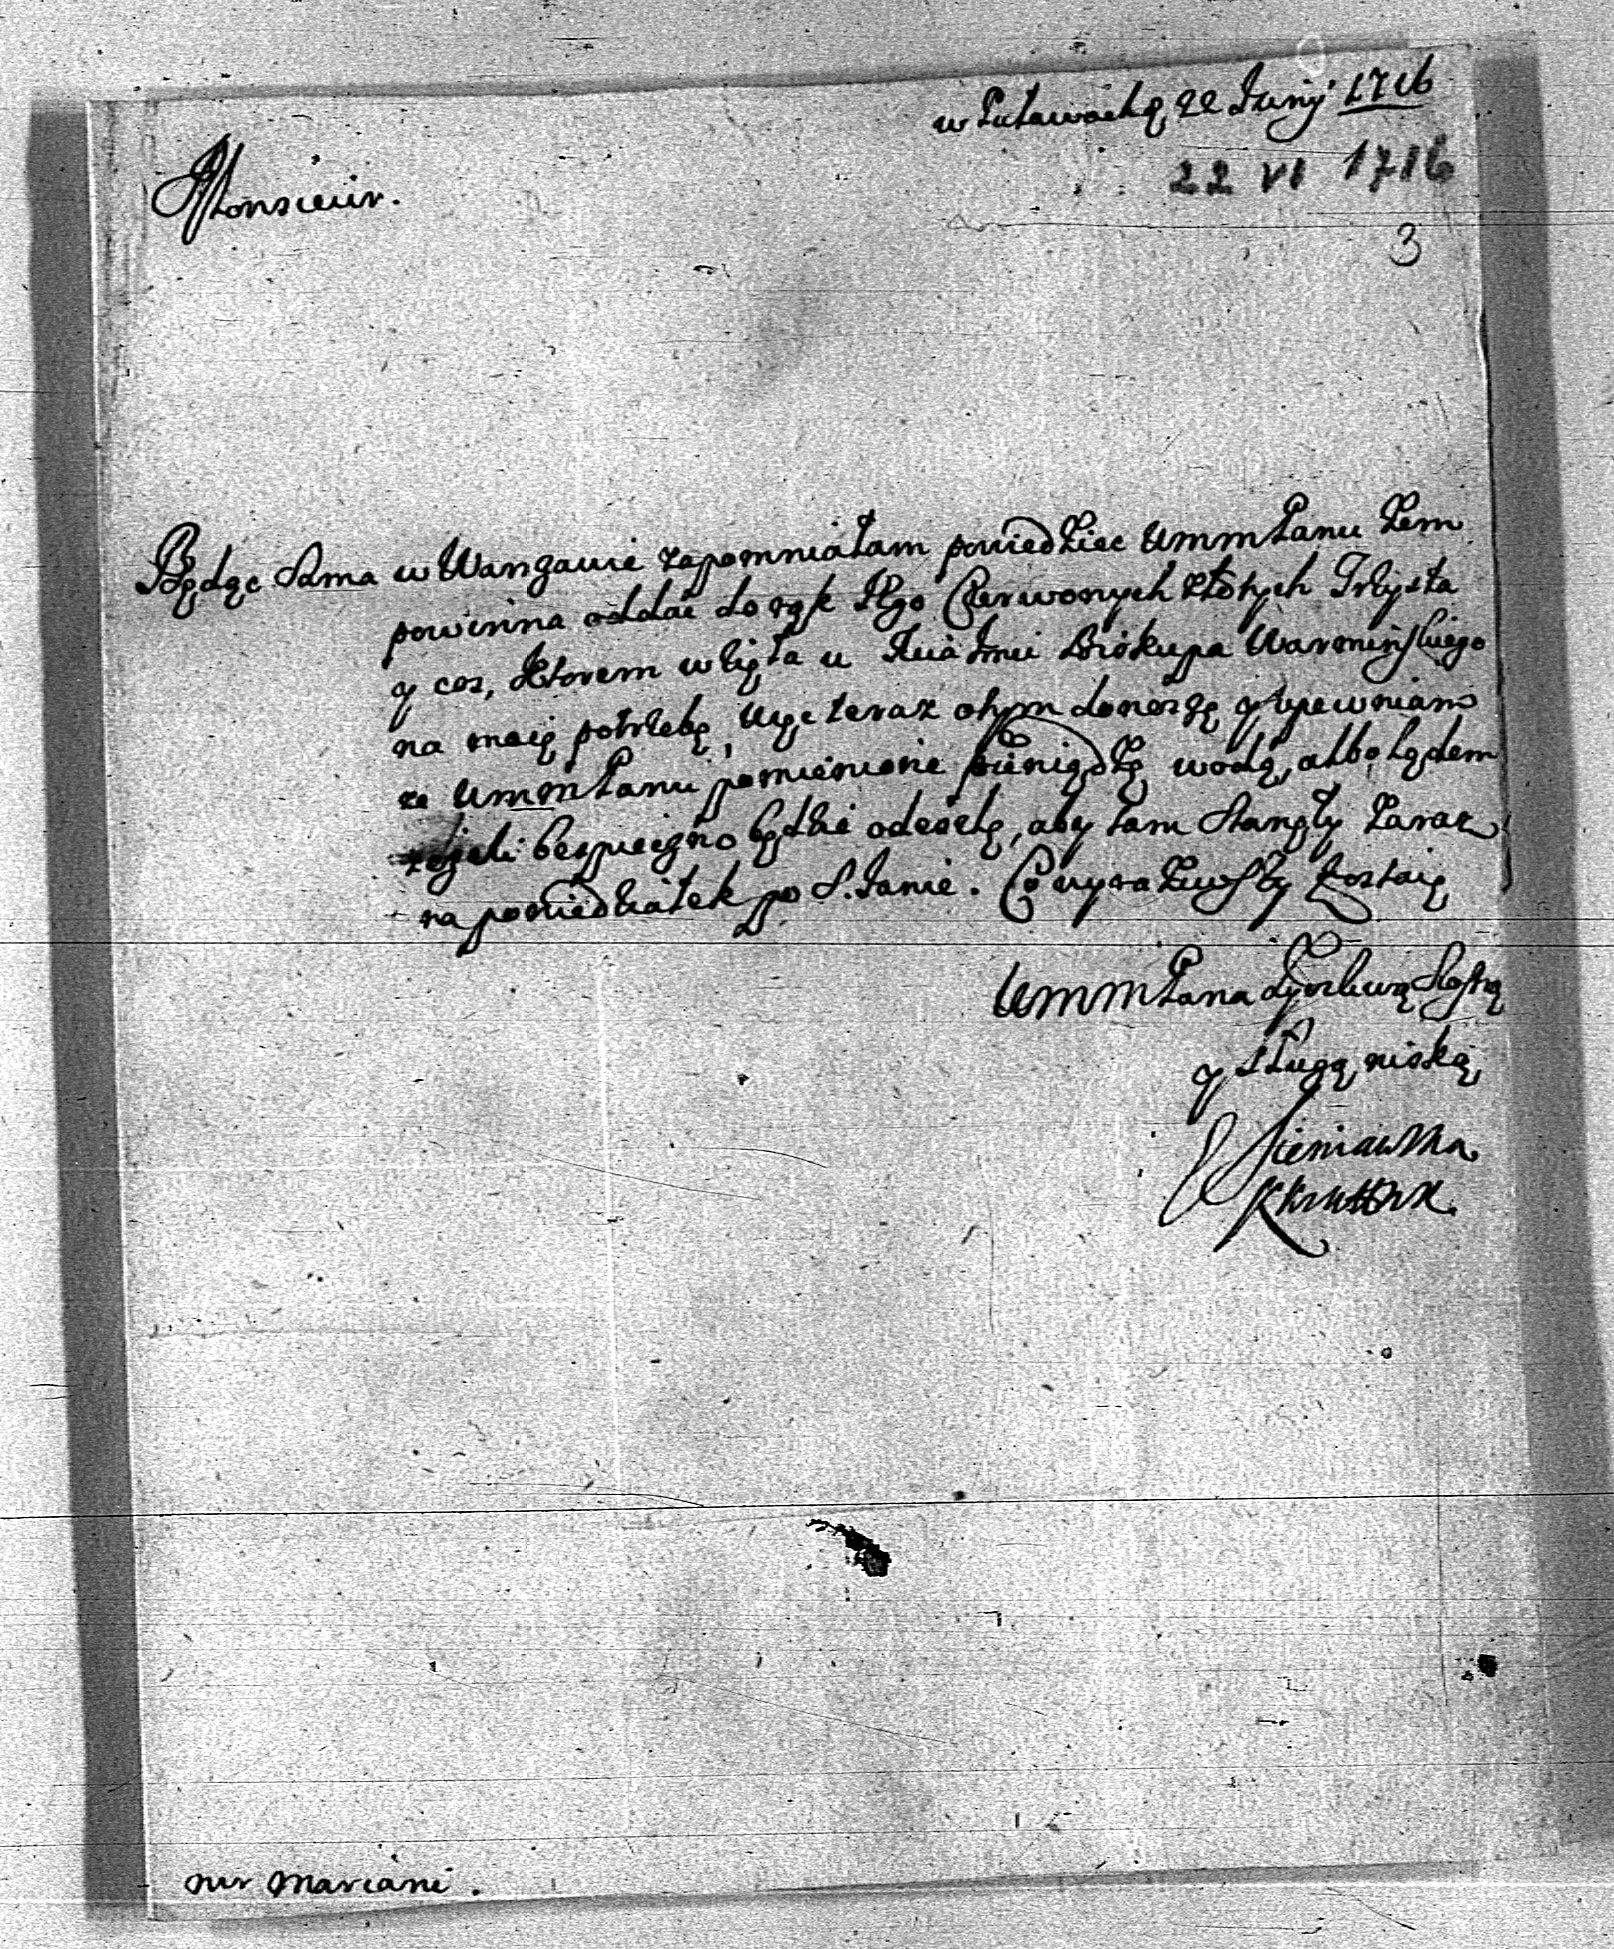 w Puławach d. 22 Junij 1716
22 VI 1716
Monsieur.
3
Będąc Sama w Warszawie zapomniałam powiedziec UmmPanu żem
powinna oddac do rąk Jego Czerwonych złotych Trzysta
y cos, ktorem wzięła u Imci Biskupa Warminskiego
na moię potrzebę, więc teraz o tym donoszę y upewniam
ze UmmPanu pomienione pieniądze wodą, albo lądem
jezeli bezpieczno będzie odeszlę, aby tam stanęły zaraz
na poniedziałek po S. Janie. Co wyraziwszy zostaię
UmmPana zyczliwą Siostrą
y sługą niską
Sieniawska
mr Mariani.